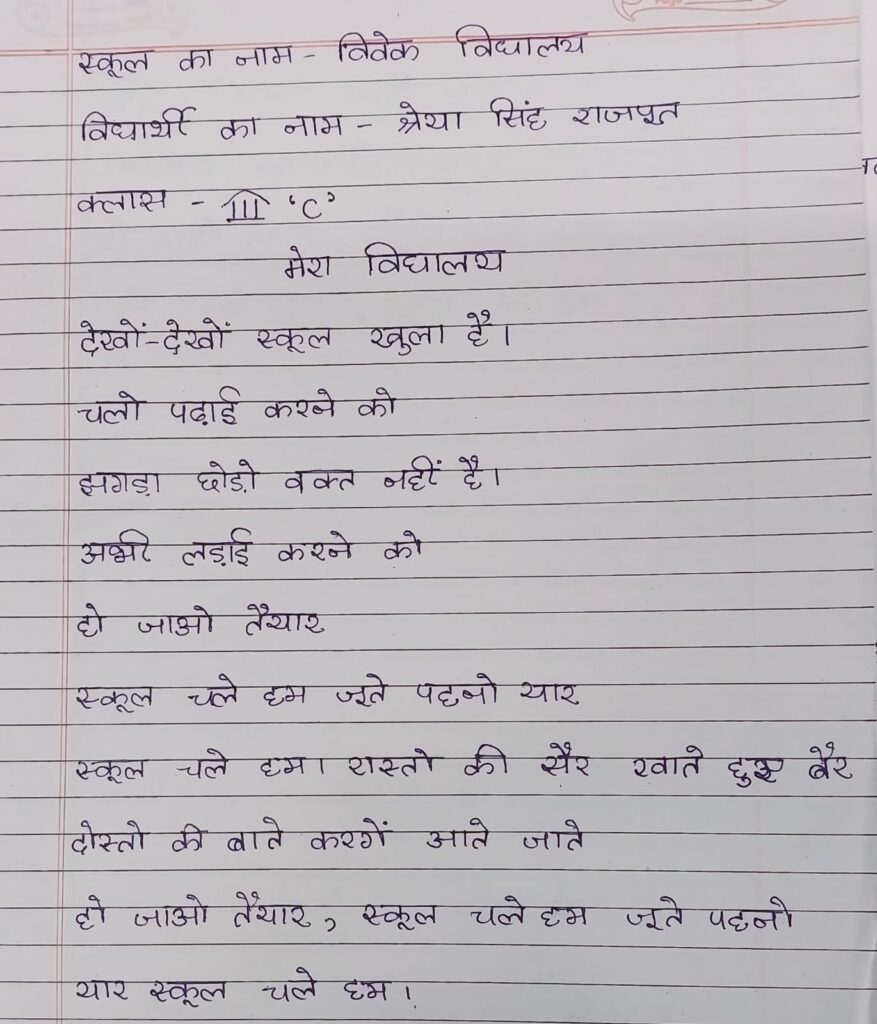 स्कूल का नाम - विवेक विद्यालय
विद्यार्थी का नाम - श्रेया सिंह राजपूत
क्लास - III 'C'
मेरा विद्यालय
देखों-देखों स्कूल खुला है।
चलो पढ़ाई करने को
झगड़ा छोड़ो वक्त नहीं है।
अभी लड़ाई करने को
हो जाओ तैयार
स्कूल चले हम जूते पहनो यार
स्कूल चले हम। रास्तो की सैर खाते हुए बैर
दोस्तो की बाते करगें आते जाते
हो जाओ तैयार, स्कूल चले हम जूते पहनो
यार स्कूल चले हम।